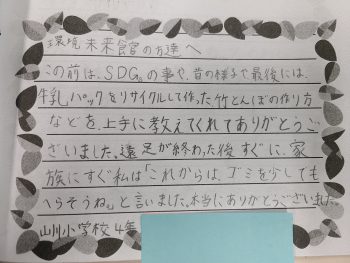 環境未来館の方達へ
この前は、SDGsの事や、昔の様子で最後には、
牛乳パックをリサイクルして作った、竹とんぼの作り方
などを、上手に教えてくれてありがとうご
ざいました。遠足が終わった後すぐに、家
族にすぐ私は「これからは、ゴミを少しでも
へらそうね。」と言いました。本当にありがとうございました。
山川小学校4年